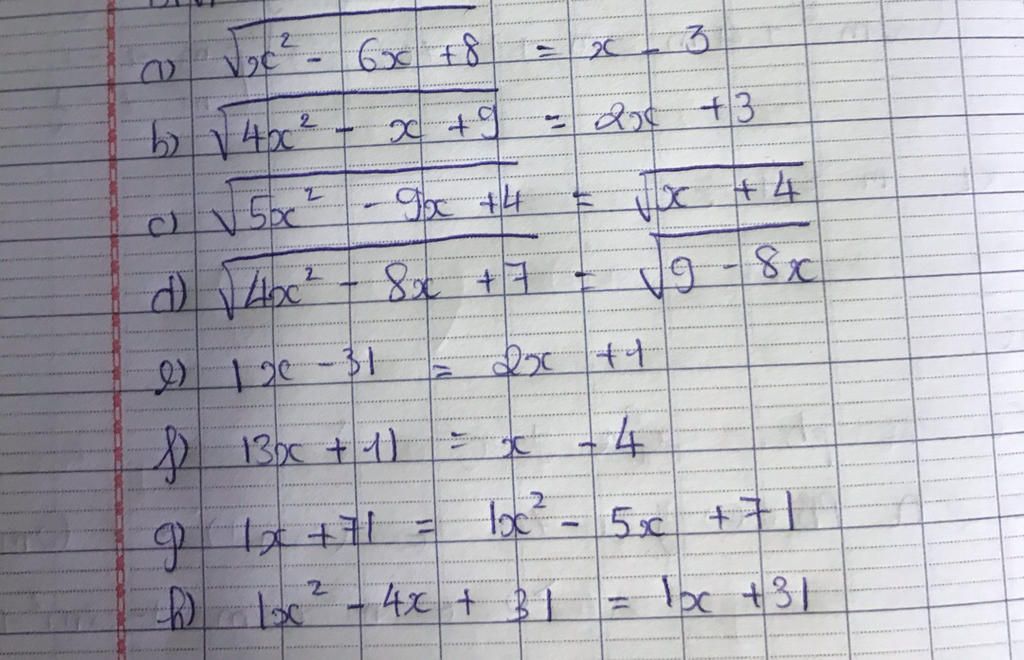 a) √(x² - 6x + 8) = x - 3
b) √(4x² - x + 9) = 2x + 3
c) √(5x² - 9x + 4) = √(x + 4)
d) √(4x² - 8x + 7) = √(9 - 8x)
e) |x - 3| = 2x + 1
f) |3x + 1| = x - 4
g) |x + 7| = |x² - 5x + 7|
h) |x² - 4x + 3| = |x + 3|